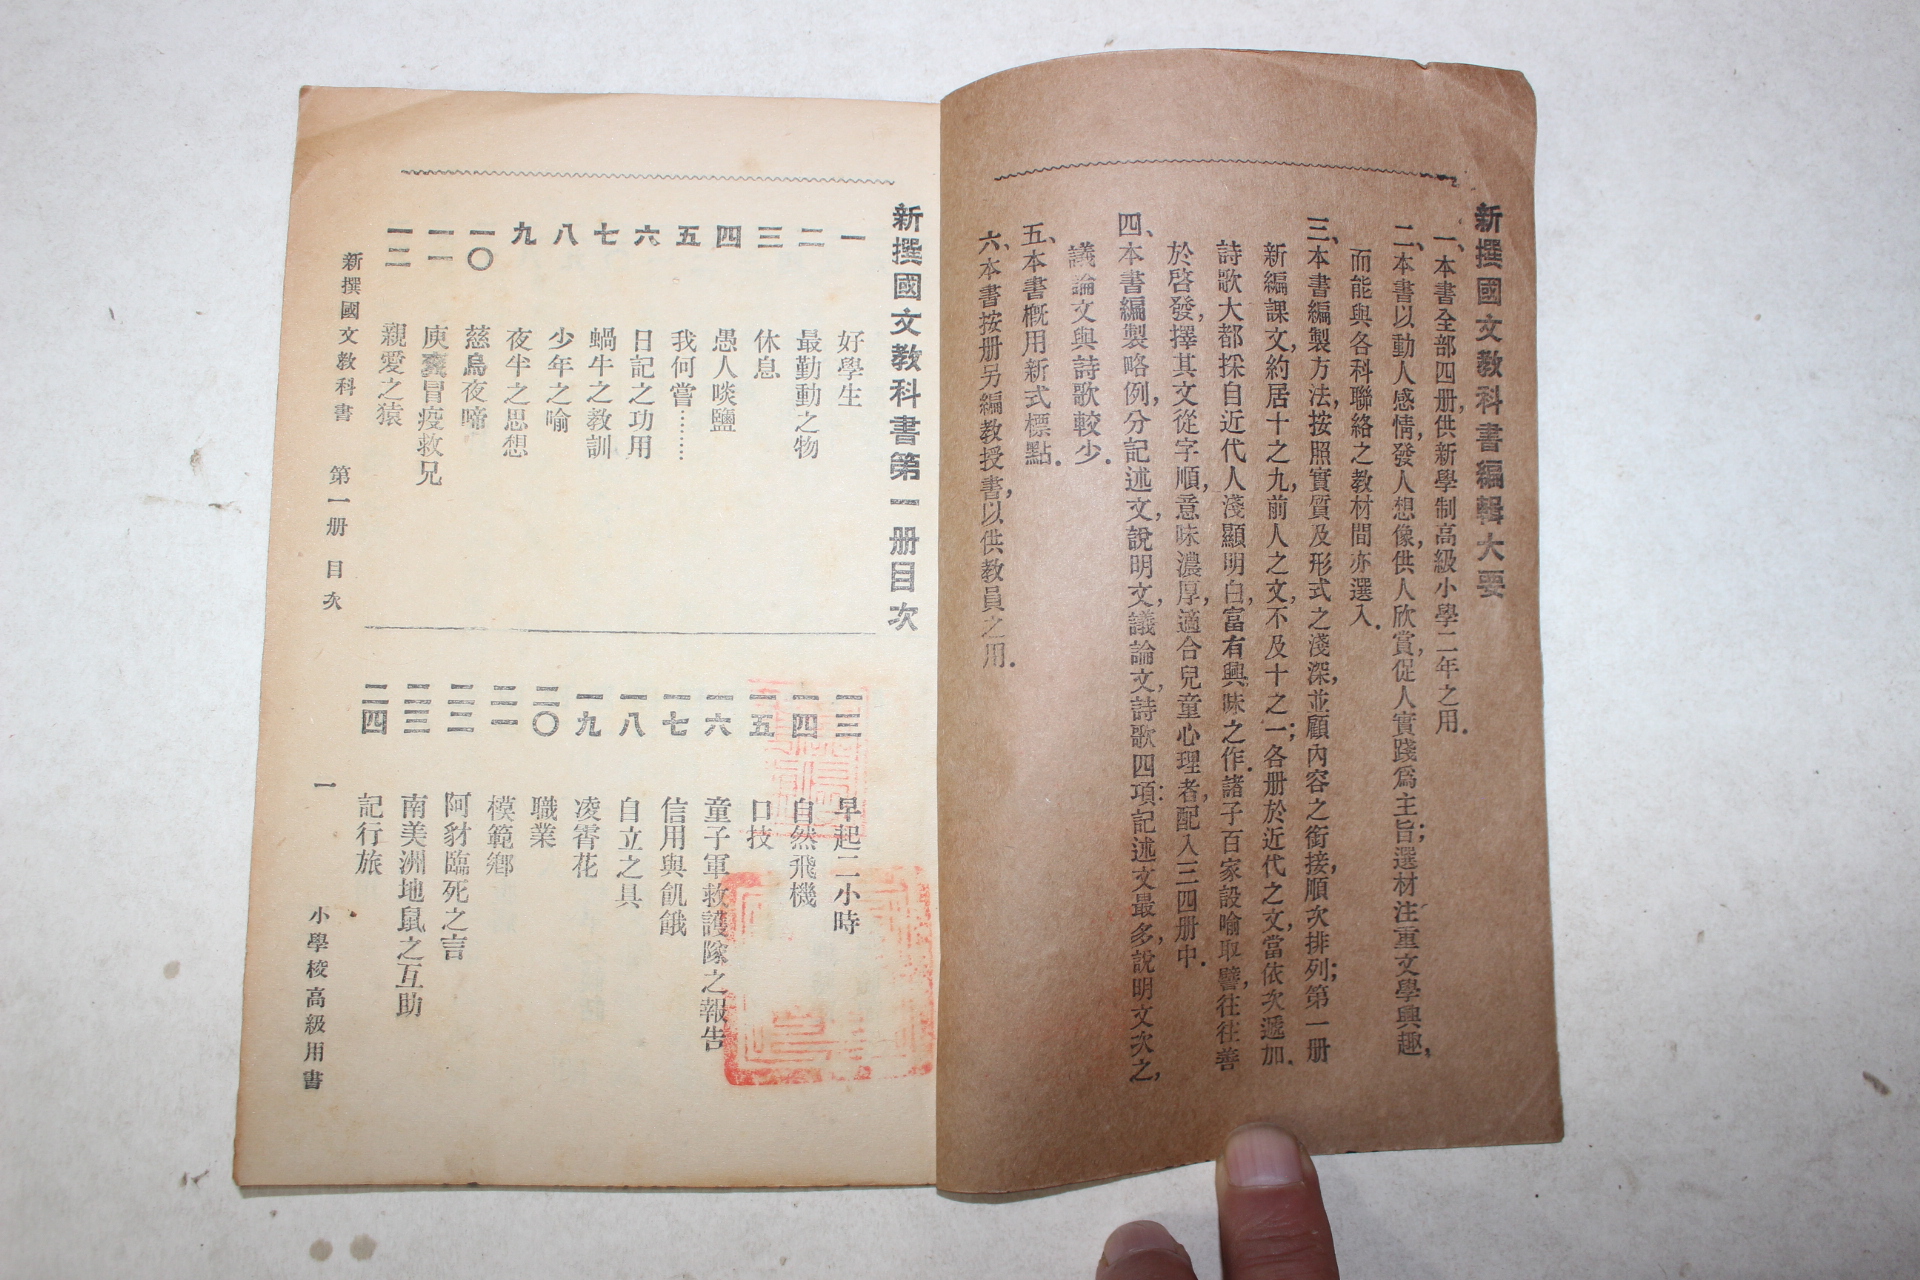 新撰國文教科書編輯大要
一、本書全部四册,供新學制高級小學二年之用.
二、本書以動人感情,發人想像,供人欣賞,促人實踐爲主旨;選材注重文學興趣,
而能與各科聯絡之教材間亦選入.
三、本書編製方法,按照實質及形式之淺深,並顧內容之銜接,順次排列;第一册
新編課文,約居十之九,前人之文,不及十之一;各册於近代之文,當依次遞加.
詩歌大都採自近代人淺顯明白,富有興味之作.諸子百家設喻取譬,往往善
於啓發,擇其文從字順,意味濃厚,適合兒童心理者,配入三四册中.
四、本書編製略例,分記述文,說明文,議論文,詩歌四項:記述文最多,說明文次之,
議論文與詩歌較少.
五、本書概用新式標點.
六、本書按册另編教授書,以供教員之用.
新撰國文教科書第一册目次
一 好學生
二 最勤動之物
三 休息
四 愚人啖鹽
五 我何嘗………
六 日記之功用
七 蝸牛之教訓
八 少年之喻
九 夜半之思想
一〇 慈烏夜啼
一一 庾袞冒疫救兄
一二 親愛之猿
一三 早起二小時
一四 自然飛機
一五 口技
一六 童子軍救護隊之報告
一七 信用與飢餓
一八 自立之具
一九 凌霄花
二〇 職業
二一 模範鄉
二二 阿豺臨死之言
二三 南美洲地鼠之互助
二四 記行旅
新撰國文教科書 第一册 目次 一 小學校高級用書